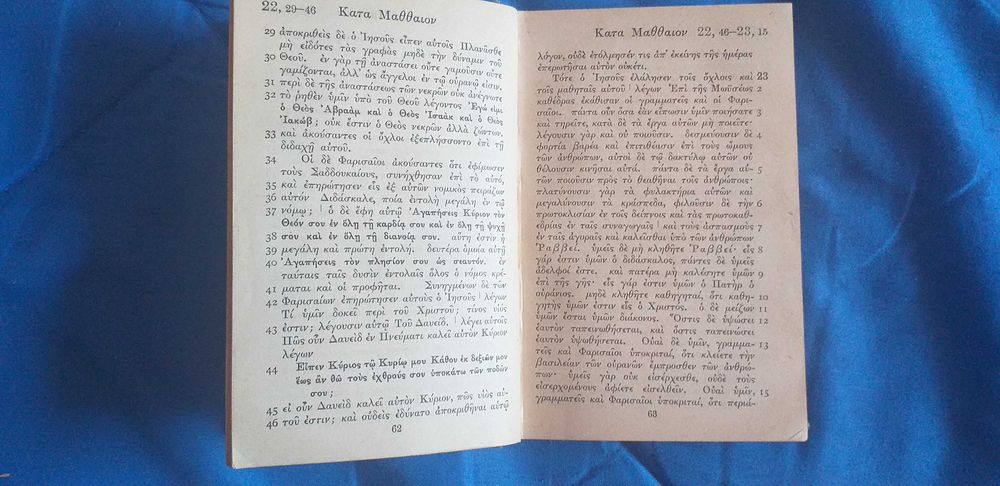 22, 29–46 Κατα Μαθθαιον
29 ἀποκριθεὶς δὲ ὁ Ἰησοῦς εἶπεν αὐτοῖς Πλανᾶσθε
μὴ εἰδότες τὰς γραφὰς μηδὲ τὴν δύναμιν τοῦ
30 Θεοῦ. ἐν γὰρ τῇ ἀναστάσει οὔτε γαμοῦσιν οὔτε
γαμίζονται, ἀλλ’ ὡς ἄγγελοι ἐν τῷ οὐρανῷ εἰσιν.
31 περὶ δὲ τῆς ἀναστάσεως τῶν νεκρῶν οὐκ ἀνέγνωτε
32 τὸ ῥηθὲν ὑμῖν ὑπὸ τοῦ Θεοῦ λέγοντος Ἐγώ εἰμι
ὁ Θεὸς Ἀβραὰμ καὶ ὁ Θεὸς Ἰσαὰκ καὶ ὁ Θεὸς
Ἰακώβ; οὐκ ἔστιν ὁ Θεὸς νεκρῶν ἀλλὰ ζώντων.
33 καὶ ἀκούσαντες οἱ ὄχλοι ἐξεπλήσσοντο ἐπὶ τῇ
διδαχῇ αὐτοῦ.
34 Οἱ δὲ Φαρισαῖοι ἀκούσαντες ὅτι ἐφίμωσεν
τοὺς Σαδδουκαίους, συνήχθησαν ἐπὶ τὸ αὐτό,
35 καὶ ἐπηρώτησεν εἷς ἐξ αὐτῶν νομικὸς πειράζων
36 αὐτόν Διδάσκαλε, ποία ἐντολὴ μεγάλη ἐν τῷ
37 νόμῳ; | ὁ δὲ ἔφη αὐτῷ Ἀγαπήσεις Κύριον τὸν
Θεόν σου ἐν ὅλῃ τῇ καρδίᾳ σου καὶ ἐν ὅλῃ τῇ ψυχῇ
38 σου καὶ ἐν ὅλῃ τῇ διανοίᾳ σου. αὕτη ἐστὶν ἡ
39 μεγάλη καὶ πρώτη ἐντολή. δευτέρα ὁμοία αὐτῇ
40 Ἀγαπήσεις τὸν πλησίον σου ὡς σεαυτόν. ἐν
ταύταις ταῖς δυσὶν ἐντολαῖς ὅλος ὁ νόμος κρέ-
μαται καὶ οἱ προφῆται.
41 Συνηγμένων δὲ τῶν
42 Φαρισαίων ἐπηρώτησεν αὐτοὺς ὁ Ἰησοῦς | λέγων
Τί ὑμῖν δοκεῖ περὶ τοῦ Χριστοῦ; τίνος υἱός
43 ἐστιν; λέγουσιν αὐτῷ Τοῦ Δαυείδ. | λέγει αὐτοῖς
Πῶς οὖν Δαυεὶδ ἐν Πνεύματι καλεῖ αὐτὸν Κύριον
λέγων
44 Εἶπεν Κύριος τῷ Κυρίῳ μου Κάθου ἐκ δεξιῶν μου
ἕως ἂν θῶ τοὺς ἐχθρούς σου ὑποκάτω τῶν ποδῶν
σου;
45 εἰ οὖν Δαυεὶδ καλεῖ αὐτὸν Κύριον, πῶς υἱὸς αὐ-
46 τοῦ ἐστιν; καὶ οὐδεὶς ἐδύνατο ἀποκριθῆναι αὐτῷ
62
Κατα Μαθθαιον 22, 46–23, 15
λόγον, οὐδὲ ἐτόλμησέν τις ἀπ’ ἐκείνης τῆς ἡμέρας
ἐπερωτῆσαι αὐτὸν οὐκέτι.
Τότε ὁ Ἰησοῦς ἐλάλησεν τοῖς ὄχλοις καὶ 23
τοῖς μαθηταῖς αὐτοῦ | λέγων Ἐπὶ τῆς Μωϋσέως 2
καθέδρας ἐκάθισαν οἱ γραμματεῖς καὶ οἱ Φαρι-
σαῖοι. πάντα οὖν ὅσα ἐὰν εἴπωσιν ὑμῖν ποιήσατε 3
καὶ τηρεῖτε, κατὰ δὲ τὰ ἔργα αὐτῶν μὴ ποιεῖτε·
λέγουσιν γὰρ καὶ οὐ ποιοῦσιν. δεσμεύουσιν δὲ 4
φορτία βαρέα καὶ ἐπιτιθέασιν ἐπὶ τοὺς ὤμους
τῶν ἀνθρώπων, αὐτοὶ δὲ τῷ δακτύλῳ αὐτῶν οὐ
θέλουσιν κινῆσαι αὐτά. πάντα δὲ τὰ ἔργα αὐ- 5
τῶν ποιοῦσιν πρὸς τὸ θεαθῆναι τοῖς ἀνθρώποις·
πλατύνουσιν γὰρ τὰ φυλακτήρια αὐτῶν καὶ
μεγαλύνουσιν τὰ κράσπεδα, φιλοῦσιν δὲ τὴν 6
πρωτοκλισίαν ἐν τοῖς δείπνοις καὶ τὰς πρωτοκαθε-
δρίας ἐν ταῖς συναγωγαῖς | καὶ τοὺς ἀσπασμοὺς 7
ἐν ταῖς ἀγοραῖς καὶ καλεῖσθαι ὑπὸ τῶν ἀνθρώπων
Ῥαββεί. ὑμεῖς δὲ μὴ κληθῆτε Ῥαββεί· εἷς 8
γάρ ἐστιν ὑμῶν ὁ διδάσκαλος, πάντες δὲ ὑμεῖς
ἀδελφοί ἐστε. καὶ πατέρα μὴ καλέσητε ὑμῶν 9
ἐπὶ τῆς γῆς· εἷς γάρ ἐστιν ὑμῶν ὁ Πατὴρ ὁ
οὐράνιος. μηδὲ κληθῆτε καθηγηταί, ὅτι καθη- 10
γητὴς ὑμῶν ἐστιν εἷς ὁ Χριστός. ὁ δὲ μείζων 11
ὑμῶν ἔσται ὑμῶν διάκονος. Ὅστις δὲ ὑψώσει 12
ἑαυτὸν ταπεινωθήσεται, καὶ ὅστις ταπεινώσει
ἑαυτὸν ὑψωθήσεται. Οὐαὶ δὲ ὑμῖν, γραμμα- 13
τεῖς καὶ Φαρισαῖοι ὑποκριταί, ὅτι κλείετε τὴν
βασιλείαν τῶν οὐρανῶν ἔμπροσθεν τῶν ἀνθρώ-
πων· ὑμεῖς γὰρ οὐκ εἰσέρχεσθε, οὐδὲ τοὺς
εἰσερχομένους ἀφίετε εἰσελθεῖν. Οὐαὶ ὑμῖν, 15
γραμματεῖς καὶ Φαρισαῖοι ὑποκριταί, ὅτι περιά-
63